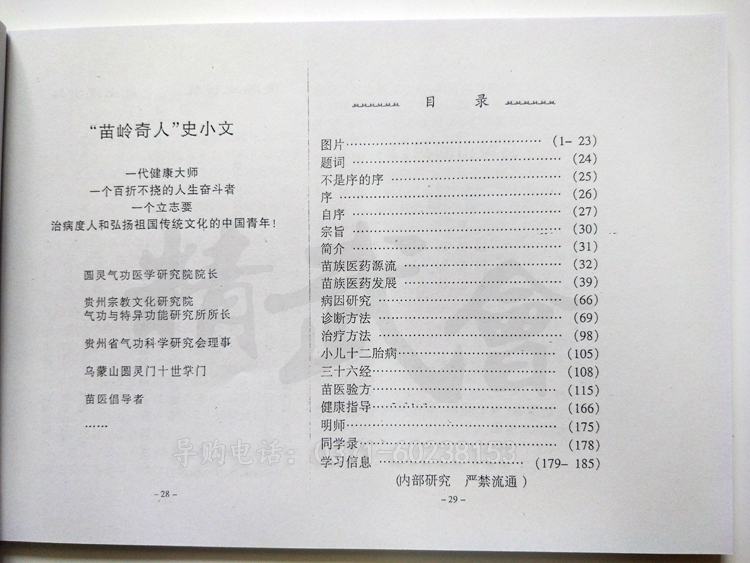 “苗岭奇人”史小文
一代健康大师
一个百折不挠的人生奋斗者
一个立志要
治病度人和弘扬祖国传统文化的中国青年！
圆灵气功医学研究院院长
贵州宗教文化研究院
气功与特异功能研究所所长
贵州省气功科学研究会理事
乌蒙山圆灵门十世掌门
苗医倡导者
……
-28-
目 录
图片……………………(1-23)
题词……………………(24)
不是序的序……………………(25)
序……………………(26)
自序……………………(27)
宗旨……………………(30)
简介……………………(31)
苗族医药源流……………………(32)
苗族医药发展……………………(39)
病因研究……………………(66)
诊断方法……………………(69)
治疗方法……………………(98)
小儿十二胎病……………………(105)
三十六经……………………(108)
苗医验方……………………(115)
健康指导……………………(166)
明师……………………(175)
同学录……………………(178)
学习信息……………………(179-185)
(内部研究 严禁流通)
-29-
精武會
导购电话：0371-60238153